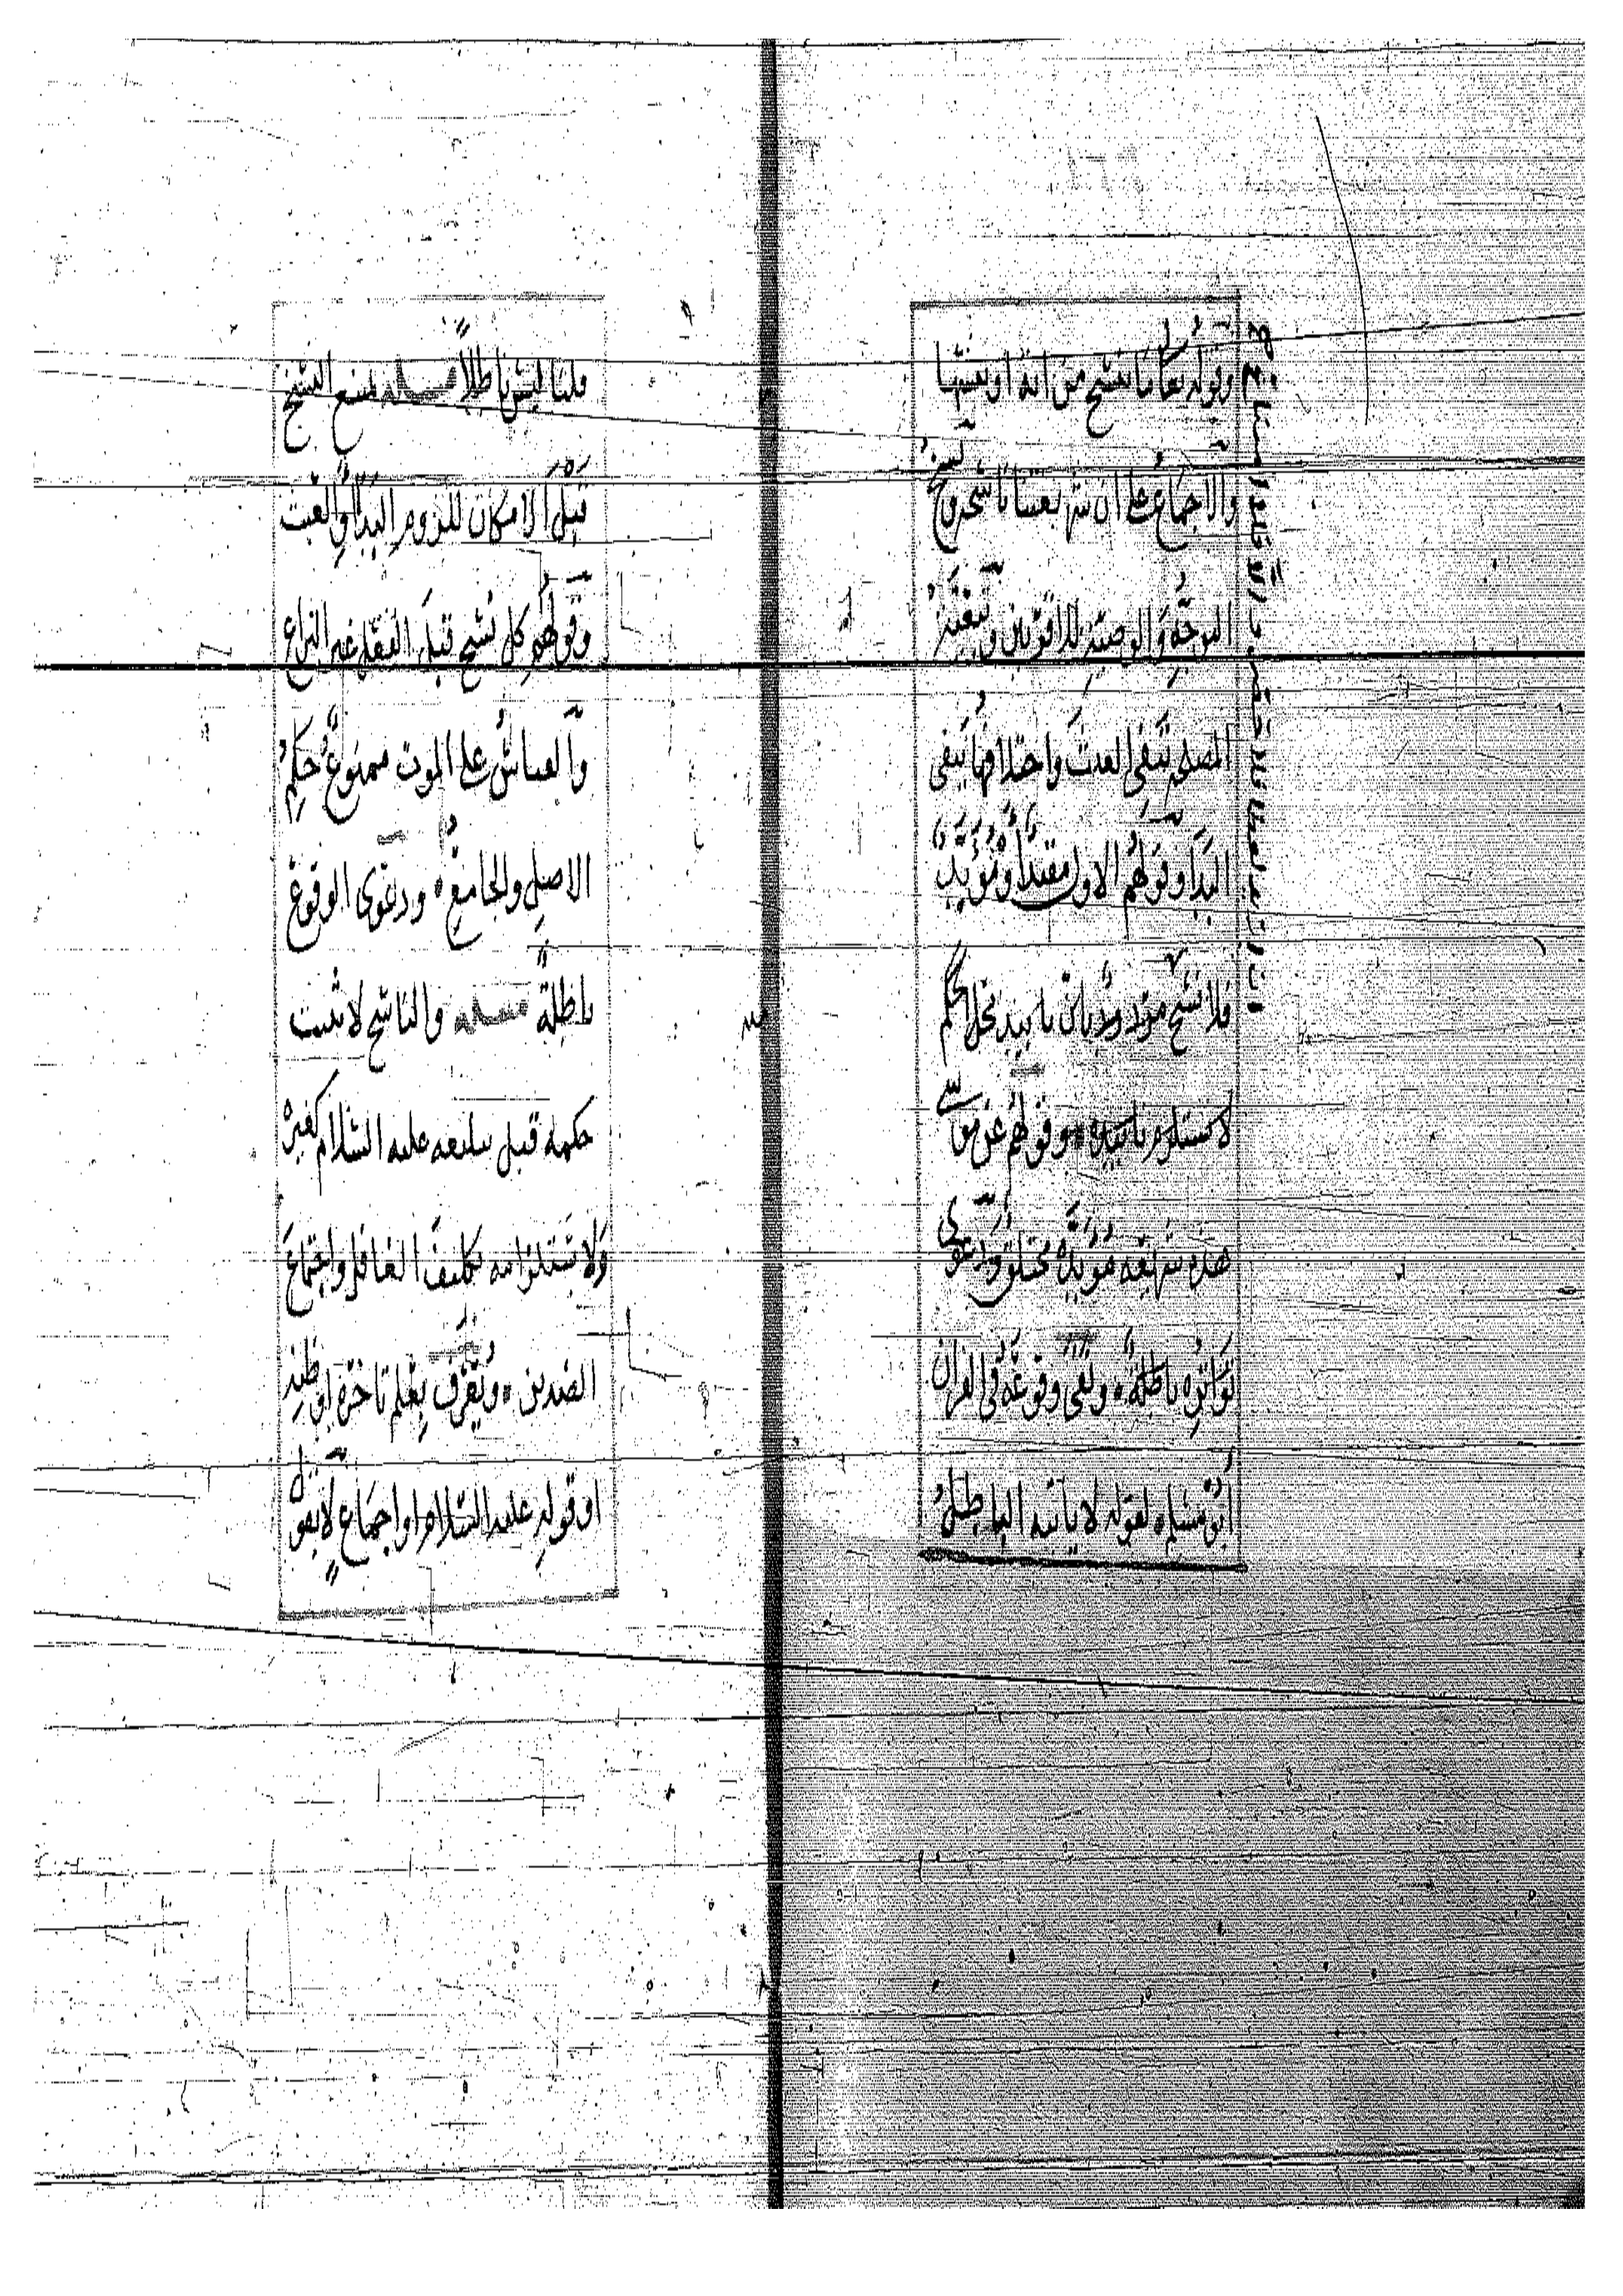 وقوله تعالى ما ننسخ من آية أو ننسها
والإجماع على أن شريعتنا ناسخة ونسخ
التوجه والوصية للأقربين وتغير
المصلحة ينفي العبث واختلافها ينفي
البدا وقولهم الأول مقيدا ومؤيد
فلا نسخ مردود بأن تأبيد محل الحكم
لا يستلزم تأبيده وقولهم عن موسى
هذه شريعة مؤبدة مختلق ودعوى
تواتره باطلة ونفى وقوعه في القرآن
أبو مسلم لقوله لا يأتيه الباطل
قلنا ليس باطلا مسئلة يمتنع النسخ
قبل الإمكان للزوم البدا أو العبث
وقولهم كل نسخ قبل الفعل غير النزاع
والقياس على الموت ممنوع حكم
الأصل والجامع ودعوى الوقوع
باطلة مسئلة والناسخ لا يثبت
حكمه قبل تبليغه عليه السلام كغيره
ولاستلزامه تكليف الغافل واجتماع
الضدين ويعرف بعلم تأخره أو ظنه
أو قوله عليه السلام أو إجماع لا بقول